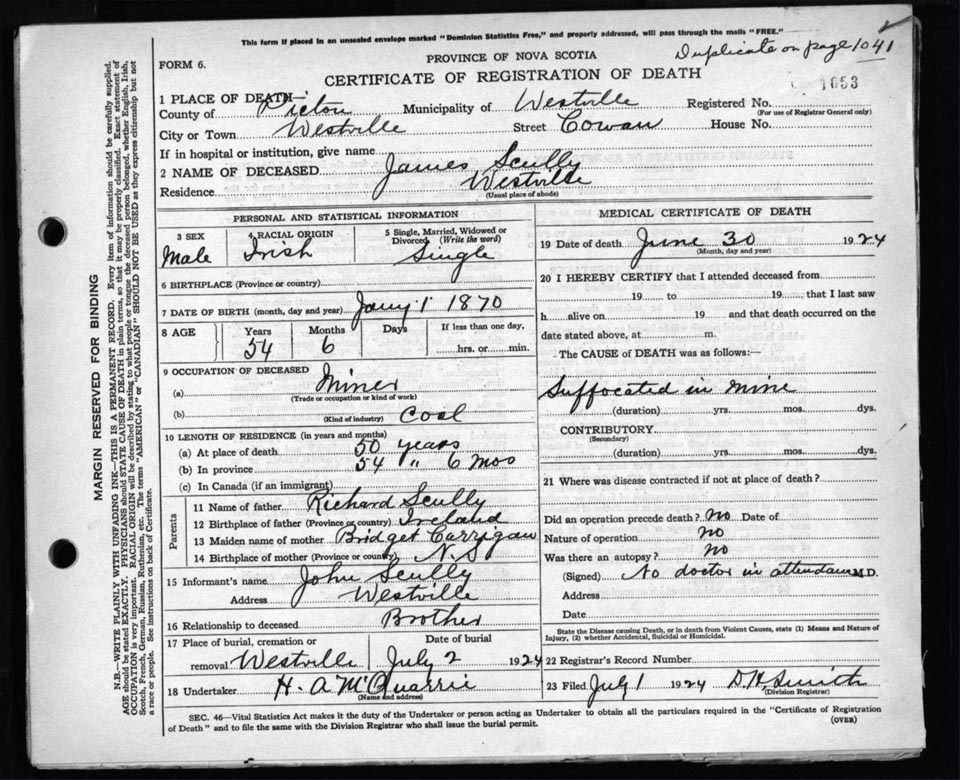 This form if placed in an unsealed envelope marked "Dominion Statistics Free," and properly addressed, will pass through the mails "FREE."
Duplicate on page 1041
FORM 6.
PROVINCE OF NOVA SCOTIA
CERTIFICATE OF REGISTRATION OF DEATH
1653
1 PLACE OF DEATH—
County of Pictou Municipality of Westville Registered No.
(For use of Registrar General only)
City or Town Westville Street Cowan House No.
If in hospital or institution, give name
2 NAME OF DECEASED James Scully
Residence Westville
(Usual place of abode)
PERSONAL AND STATISTICAL INFORMATION
3 SEX 4 RACIAL ORIGIN 5 Single, Married, Widowed or Divorced (Write the word)
Male Irish Single
6 BIRTHPLACE (Province or country)
7 DATE OF BIRTH (month, day and year) Jany 1 1870
8 AGE Years Months Days If less than one day,
54 6 hrs. or min.
9 OCCUPATION OF DECEASED
(a) Miner
(Trade or occupation or kind of work)
(b) Coal
(Kind of industry)
10 LENGTH OF RESIDENCE (in years and months)
(a) At place of death 50 years
(b) In province 54 " 6 mos
(c) In Canada (if an immigrant)
Parents
11 Name of father Richard Scully
12 Birthplace of father (Province or country) Ireland
13 Maiden name of mother Bridget Carrigan
14 Birthplace of mother (Province or country) N.S
15 Informant's name John Scully
Address Westville
16 Relationship to deceased Brother
17 Place of burial, cremation or Date of burial
removal Westville July 2 1924
18 Undertaker H. A McQuarrie
(Name and address)
MEDICAL CERTIFICATE OF DEATH
19 Date of death June 30 1924
(Month, day and year)
20 I HEREBY CERTIFY that I attended deceased from
19 to 19 that I last saw
h alive on 19 and that death occurred on the
date stated above, at m.
The CAUSE of DEATH was as follows:—
Suffocated in mine
(duration) yrs. mos. dys.
CONTRIBUTORY
(Secondary)
(duration) yrs. mos. dys.
21 Where was disease contracted if not at place of death?
Did an operation precede death? No Date of
Nature of operation no
Was there an autopsy? no
(Signed) No doctor in attendance M.D.
Address
Date
State the Disease causing Death, or in death from Violent Causes, state (1) Means and Nature of
Injury, (2) whether Accidental, Suicidal or Homicidal.
22 Registrar's Record Number
23 Filed July 1 1924 D H Smith
(Division Registrar)
SEC. 46—Vital Statistics Act makes it the duty of the Undertaker or person acting as Undertaker to obtain all the particulars required in the "Certificate of Registration
of Death" and to file the same with the Division Registrar who shall issue the burial permit.
(OVER)
MARGIN RESERVED FOR BINDING
N.B.—WRITE PLAINLY WITH UNFADING INK—THIS IS A PERMANENT RECORD. Every item of information should be carefully supplied.
AGE should be stated EXACTLY. PHYSICIANS should STATE CAUSE OF DEATH in plain terms, so that it may be properly classified. Exact statement of
OCCUPATION is very important. RACIAL ORIGIN will be described by stating to what people or tongue the deceased person belonged, whether English, Irish,
Scotch, French, German, Russian, Ruthenian, etc. The terms "AMERICAN" or "CANADIAN" SHOULD NOT BE USED as they express citizenship but not
a race or people. See instructions on back of Certificate.